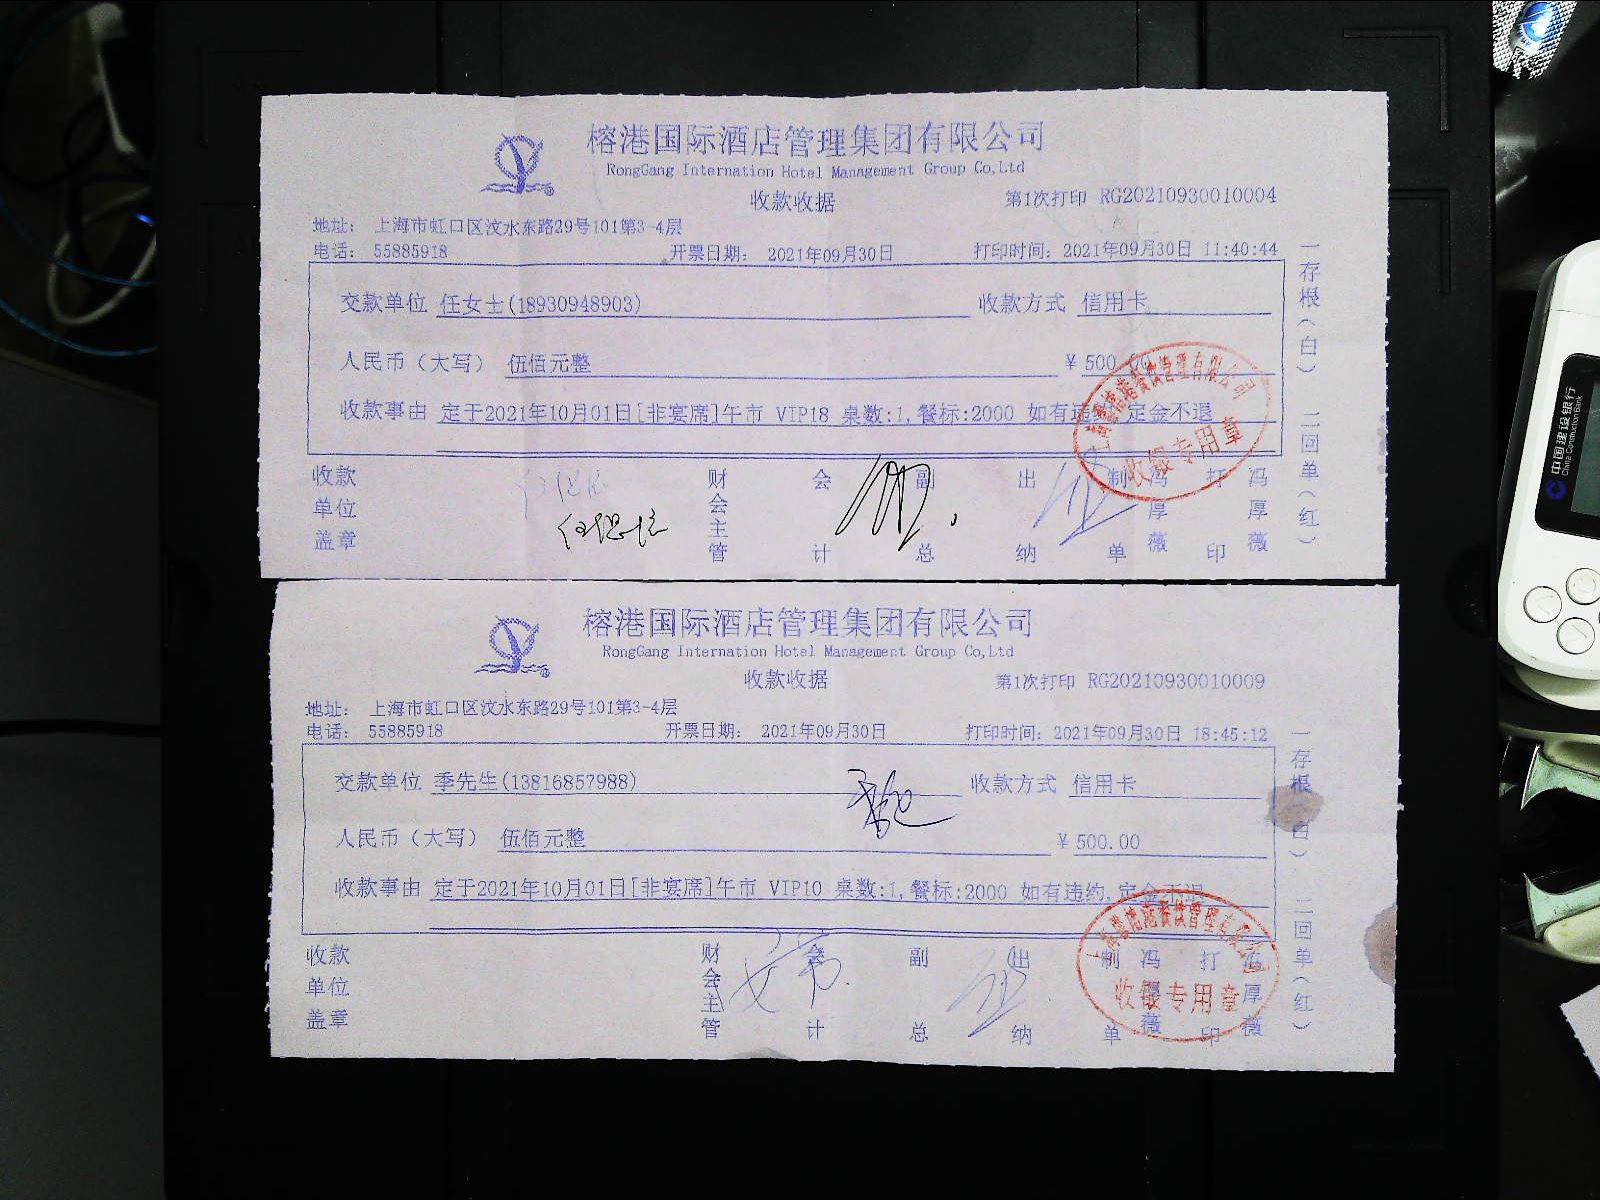 榕港国际酒店管理集团有限公司
RongGang Internation Hotel Management Group Co,Ltd
收款收据
第1次打印 RG20210930010004
地址： 上海市虹口区汶水东路29号101第3-4层
电话： 55885918 开票日期： 2021年09月30日 打印时间：2021年09月30日 11:40:44
交款单位 任女士(18930948903) 收款方式 信用卡
人民币（大写） 伍佰元整 ¥500.00
收款事由 定于2021年10月01日[非宴席]午市 VIP18 桌数:1,餐标:2000 如有违约,定金不退
收款单位盖章 财会主管 会计 副总 出纳 制单 冯厚薇 打印 冯厚薇
一存根（白） 二回单（红）
收银专用章
榕港国际酒店管理集团有限公司
RongGang Internation Hotel Management Group Co,Ltd
收款收据
第1次打印 RG20210930010009
地址： 上海市虹口区汶水东路29号101第3-4层
电话： 55885918 开票日期： 2021年09月30日 打印时间：2021年09月30日 18:45:12
交款单位 季先生(13816857988) 收款方式 信用卡
人民币（大写） 伍佰元整 ¥500.00
收款事由 定于2021年10月01日[非宴席]午市 VIP10 桌数:1,餐标:2000 如有违约,定金不退
收款单位盖章 财会主管 会计 副总 出纳 制单 冯厚薇 打印 冯厚薇
一存根（白） 二回单（红）
收银专用章
中国建设银行
China Construction Bank